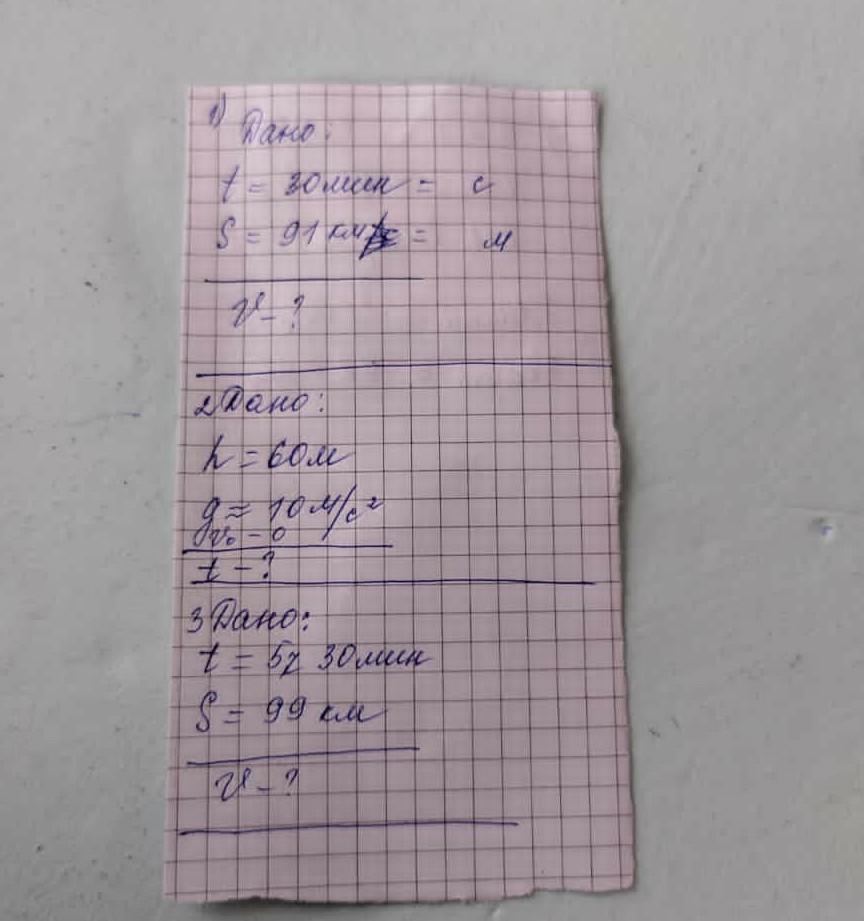 1)
Дано:
t = 30мин = с
S = 91 км = м
v - ?
2 Дано:
h = 60м
g ≈ 10 м/с²
v₀ - 0
t - ?
3 Дано:
t = 5ч 30мин
S = 99 км
v - ?